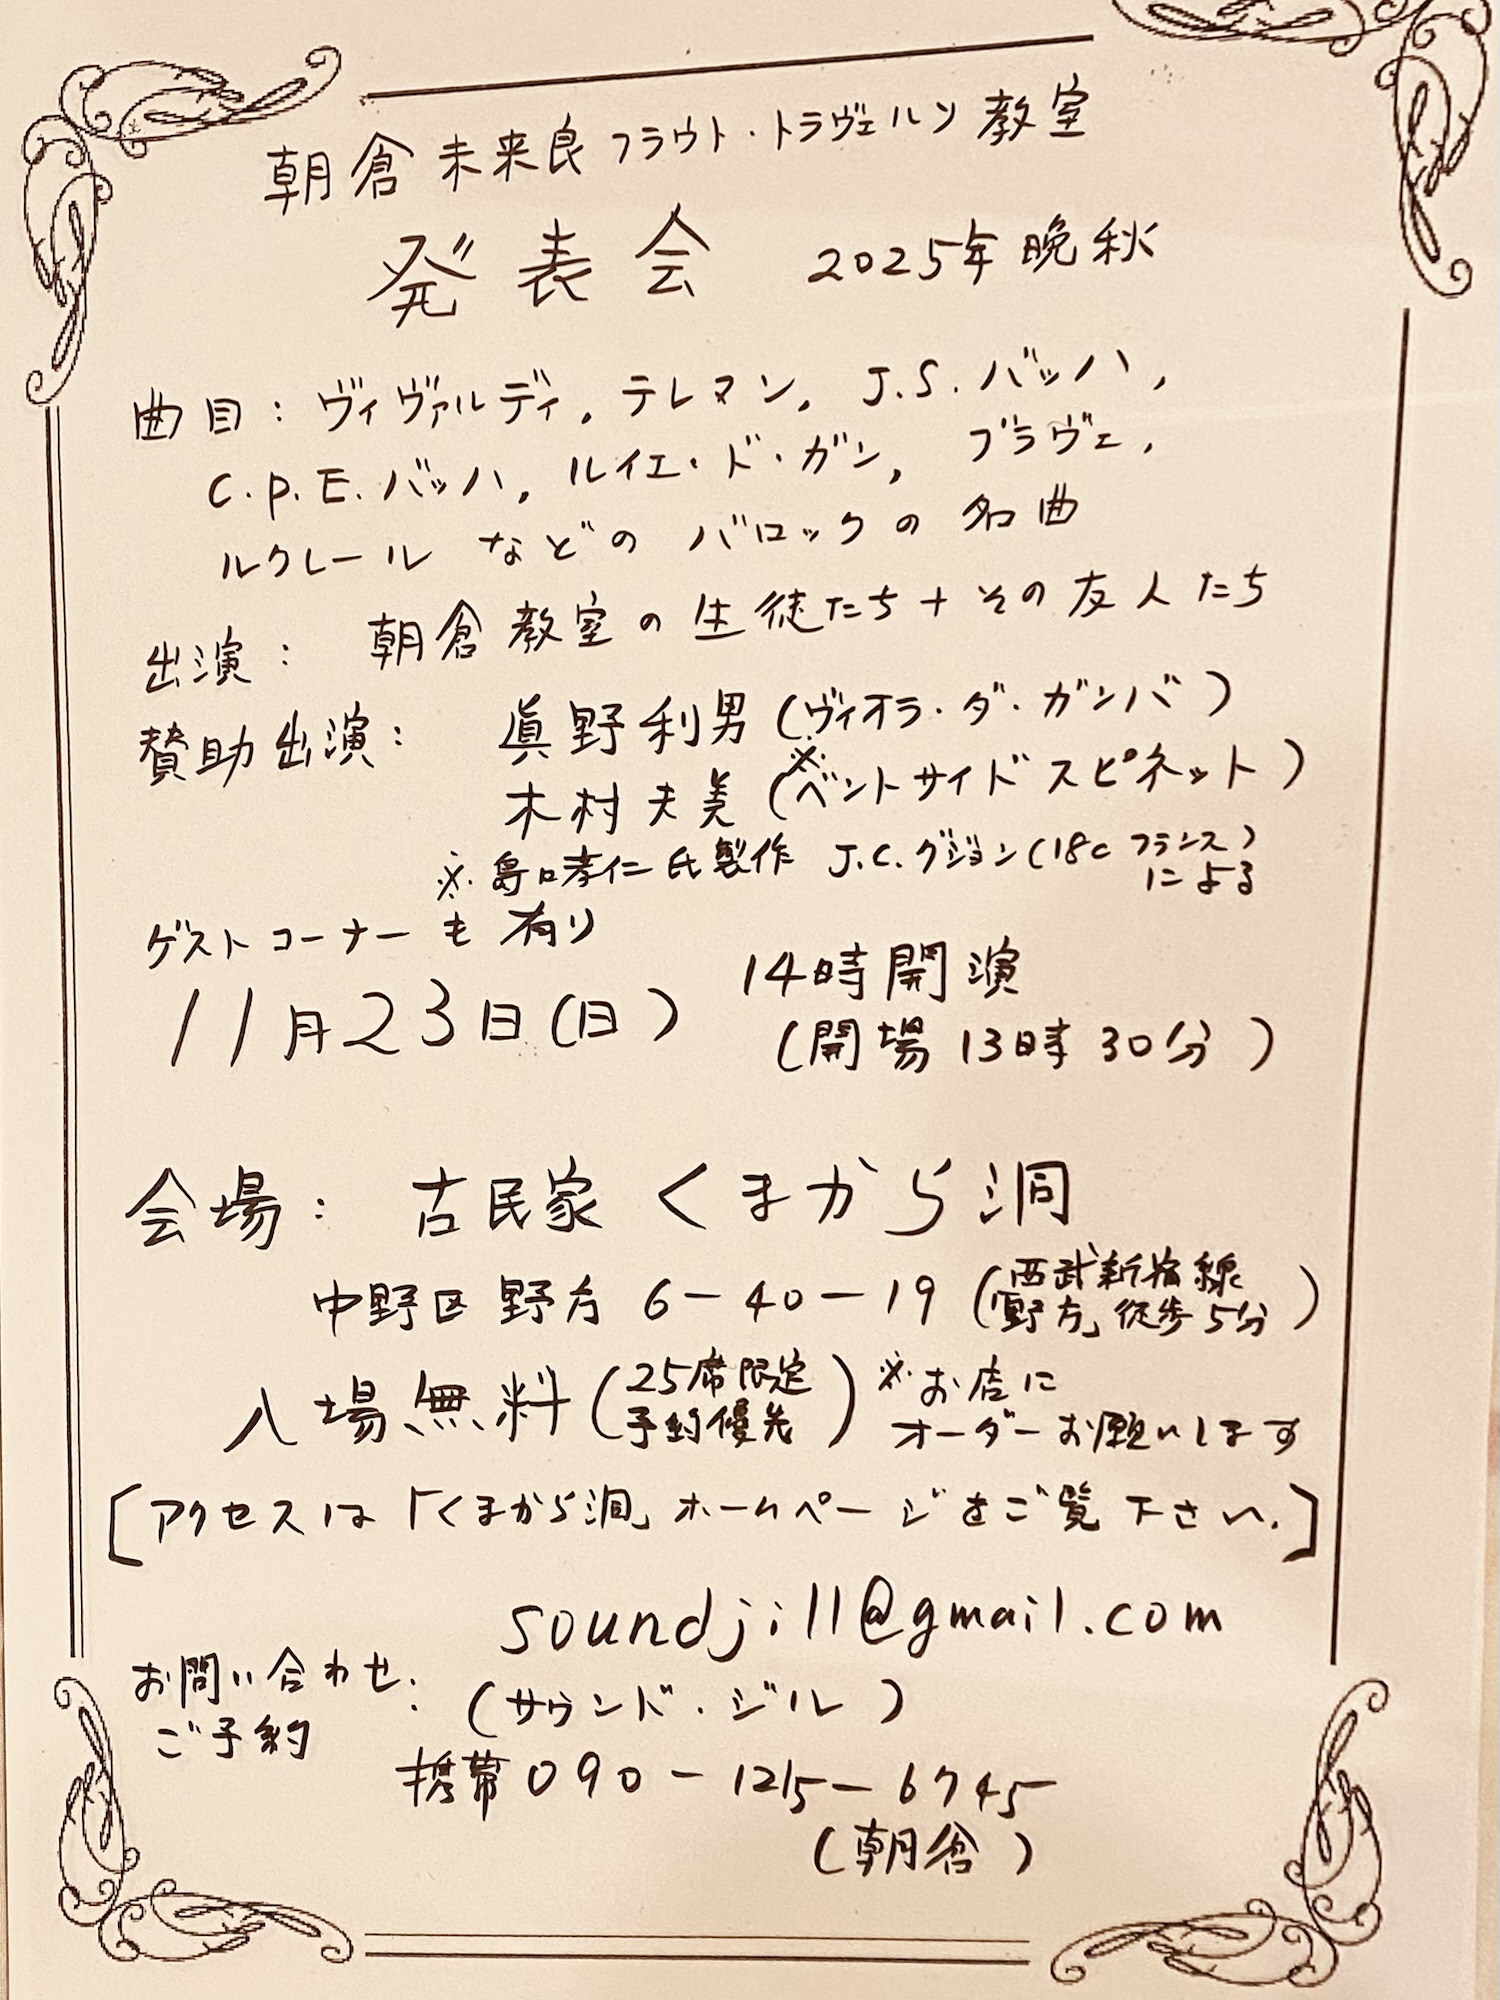 朝倉未来良フラウト・トラヴェルソ教室
発表会 2025年晩秋
曲目：ヴィヴァルディ，テレマン，J.S.バッハ，
C.P.E.バッハ，ルイエ・ド・ガン，ブラヴェ，
ルクレール などの バロックの 名曲
出演： 朝倉教室の生徒たち＋その友人たち
賛助出演： 眞野利男（ヴィオラ・ダ・ガンバ）
木村夫美（※ベントサイドスピネット）
※島口孝仁氏製作 J.C.グジョン（18c フランス）
による
ゲストコーナーも有り
11月23日（日） 14時開演
（開場13時30分）
会場： 古民家 くまから洞
中野区野方 6-40-19（西武新宿線
「野方」徒歩5分）
入場無料（25席限定
予約優先） ※お店に
オーダーお願いします
[アクセスは「くまから洞」ホームページをご覧下さい.]
soundjill@gmail.com
お問い合わせ：（サウンド・ジル）
ご予約
携帯090-1215-6745
（朝倉）